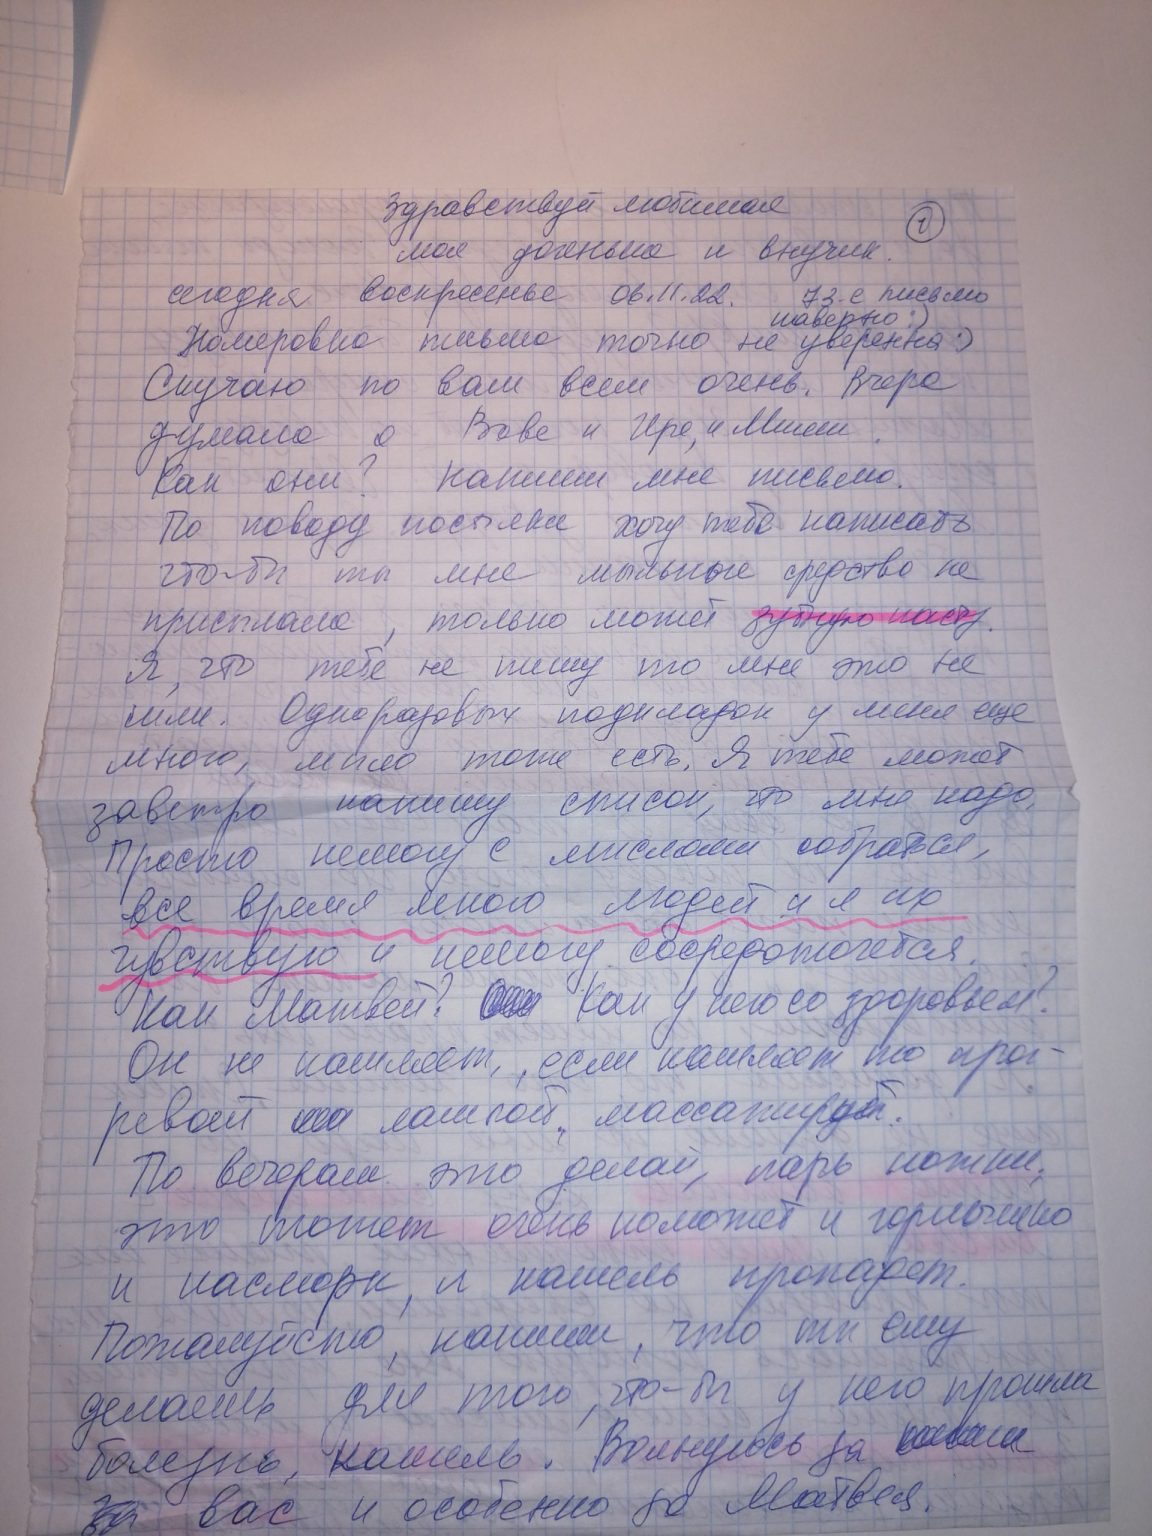 Здравствуй любимая
моя доченька и внучик. 1
сегодня воскресенье 06.11.22. 73-е письмо
наверно :)
Номеровка письма точно не уверенна :)
Скучаю по вам всем очень. Вчера
думала о Вове и Ире, и Миши.
Как они? Напиши мне письмо.
По поводу посылки хочу тебе написать
что-бы ты мне мыльные средство не
присылала, только может зубную пасту.
Я, что тебе не пишу то мне это не
шли. Одноразовых подкладок у меня еще
много, мыло тоже есть. Я тебе может
завтро напишу список, что мне надо.
Просто немогу с мыслями собратся,
все время много людей и я их
чувствую и немогу сосредоточется.
Как Матвей? Как у него со здоровьем?
Он не кашляет, если кашляет то прог-
ревай лампой, массажируй.
По вечерам это делай, парь ножки,
это может очень поможет и горлышко
и насморк, и кашель пропадет.
Пожалуйсто, напиши, что ты ему
делаешь для того, что-бы у него прошла
болезнь, кашель. Волнуюсь за
за вас и особенно за Матвея.